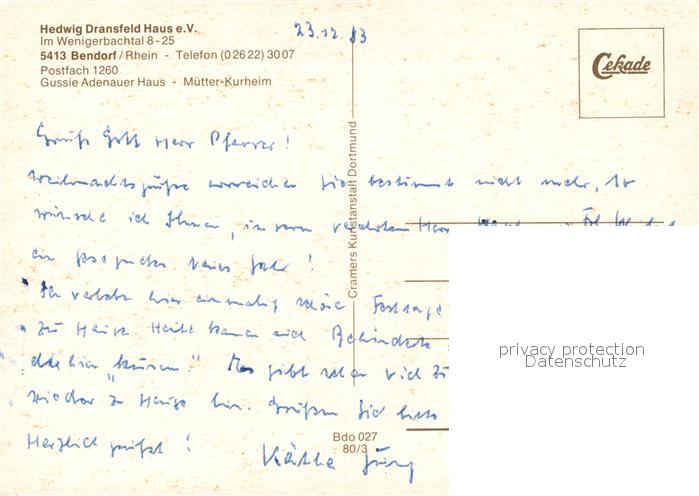 Hedwig Dransfeld Haus e.V.
Im Wenigerbachtal 8-25
5413 Bendorf/Rhein - Telefon (02622) 3007
Postfach 1260
Gussie Adenauer Haus - Mütter-Kurheim
23.12.83
Cekade
Grüß Gott Herr Pfarrer!
Weihnachtsgrüße erreichen Sie bestimmt nicht mehr, so
wünsche ich Ihnen,
ein gesegnetes neues Jahr!
Ich verlebe hier einmalig schöne Festtage
zu Hause. Heute kamen auch Behinderte
die hier "kuren". Es gibt schon viel zu
wieder zu Hause bin. Grüßen Sie bitte
Herzlich grüßt!
Käthe Jung
Cramers Kunstanstalt Dortmund
Bdo 027
80/3
privacy protection
Datenschutz